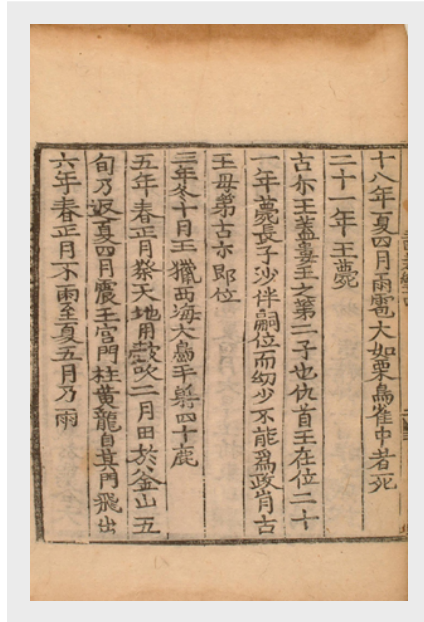 十八年夏四月雨雹大如栗鳥雀中者死
二十一年王薨
古尒王蓋婁王之第二子也仇首王在位二十
一年薨長子沙伴嗣位而幼少不能爲政肖古
王母弟古尒即位
三年冬十月王獵西海大島手䠶四十鹿
五年春正月祭天地用鼓吹二月田於釜山五
旬乃返夏四月震王宮門柱黃龍自其門飛出
六年春正月不雨至夏五月乃雨